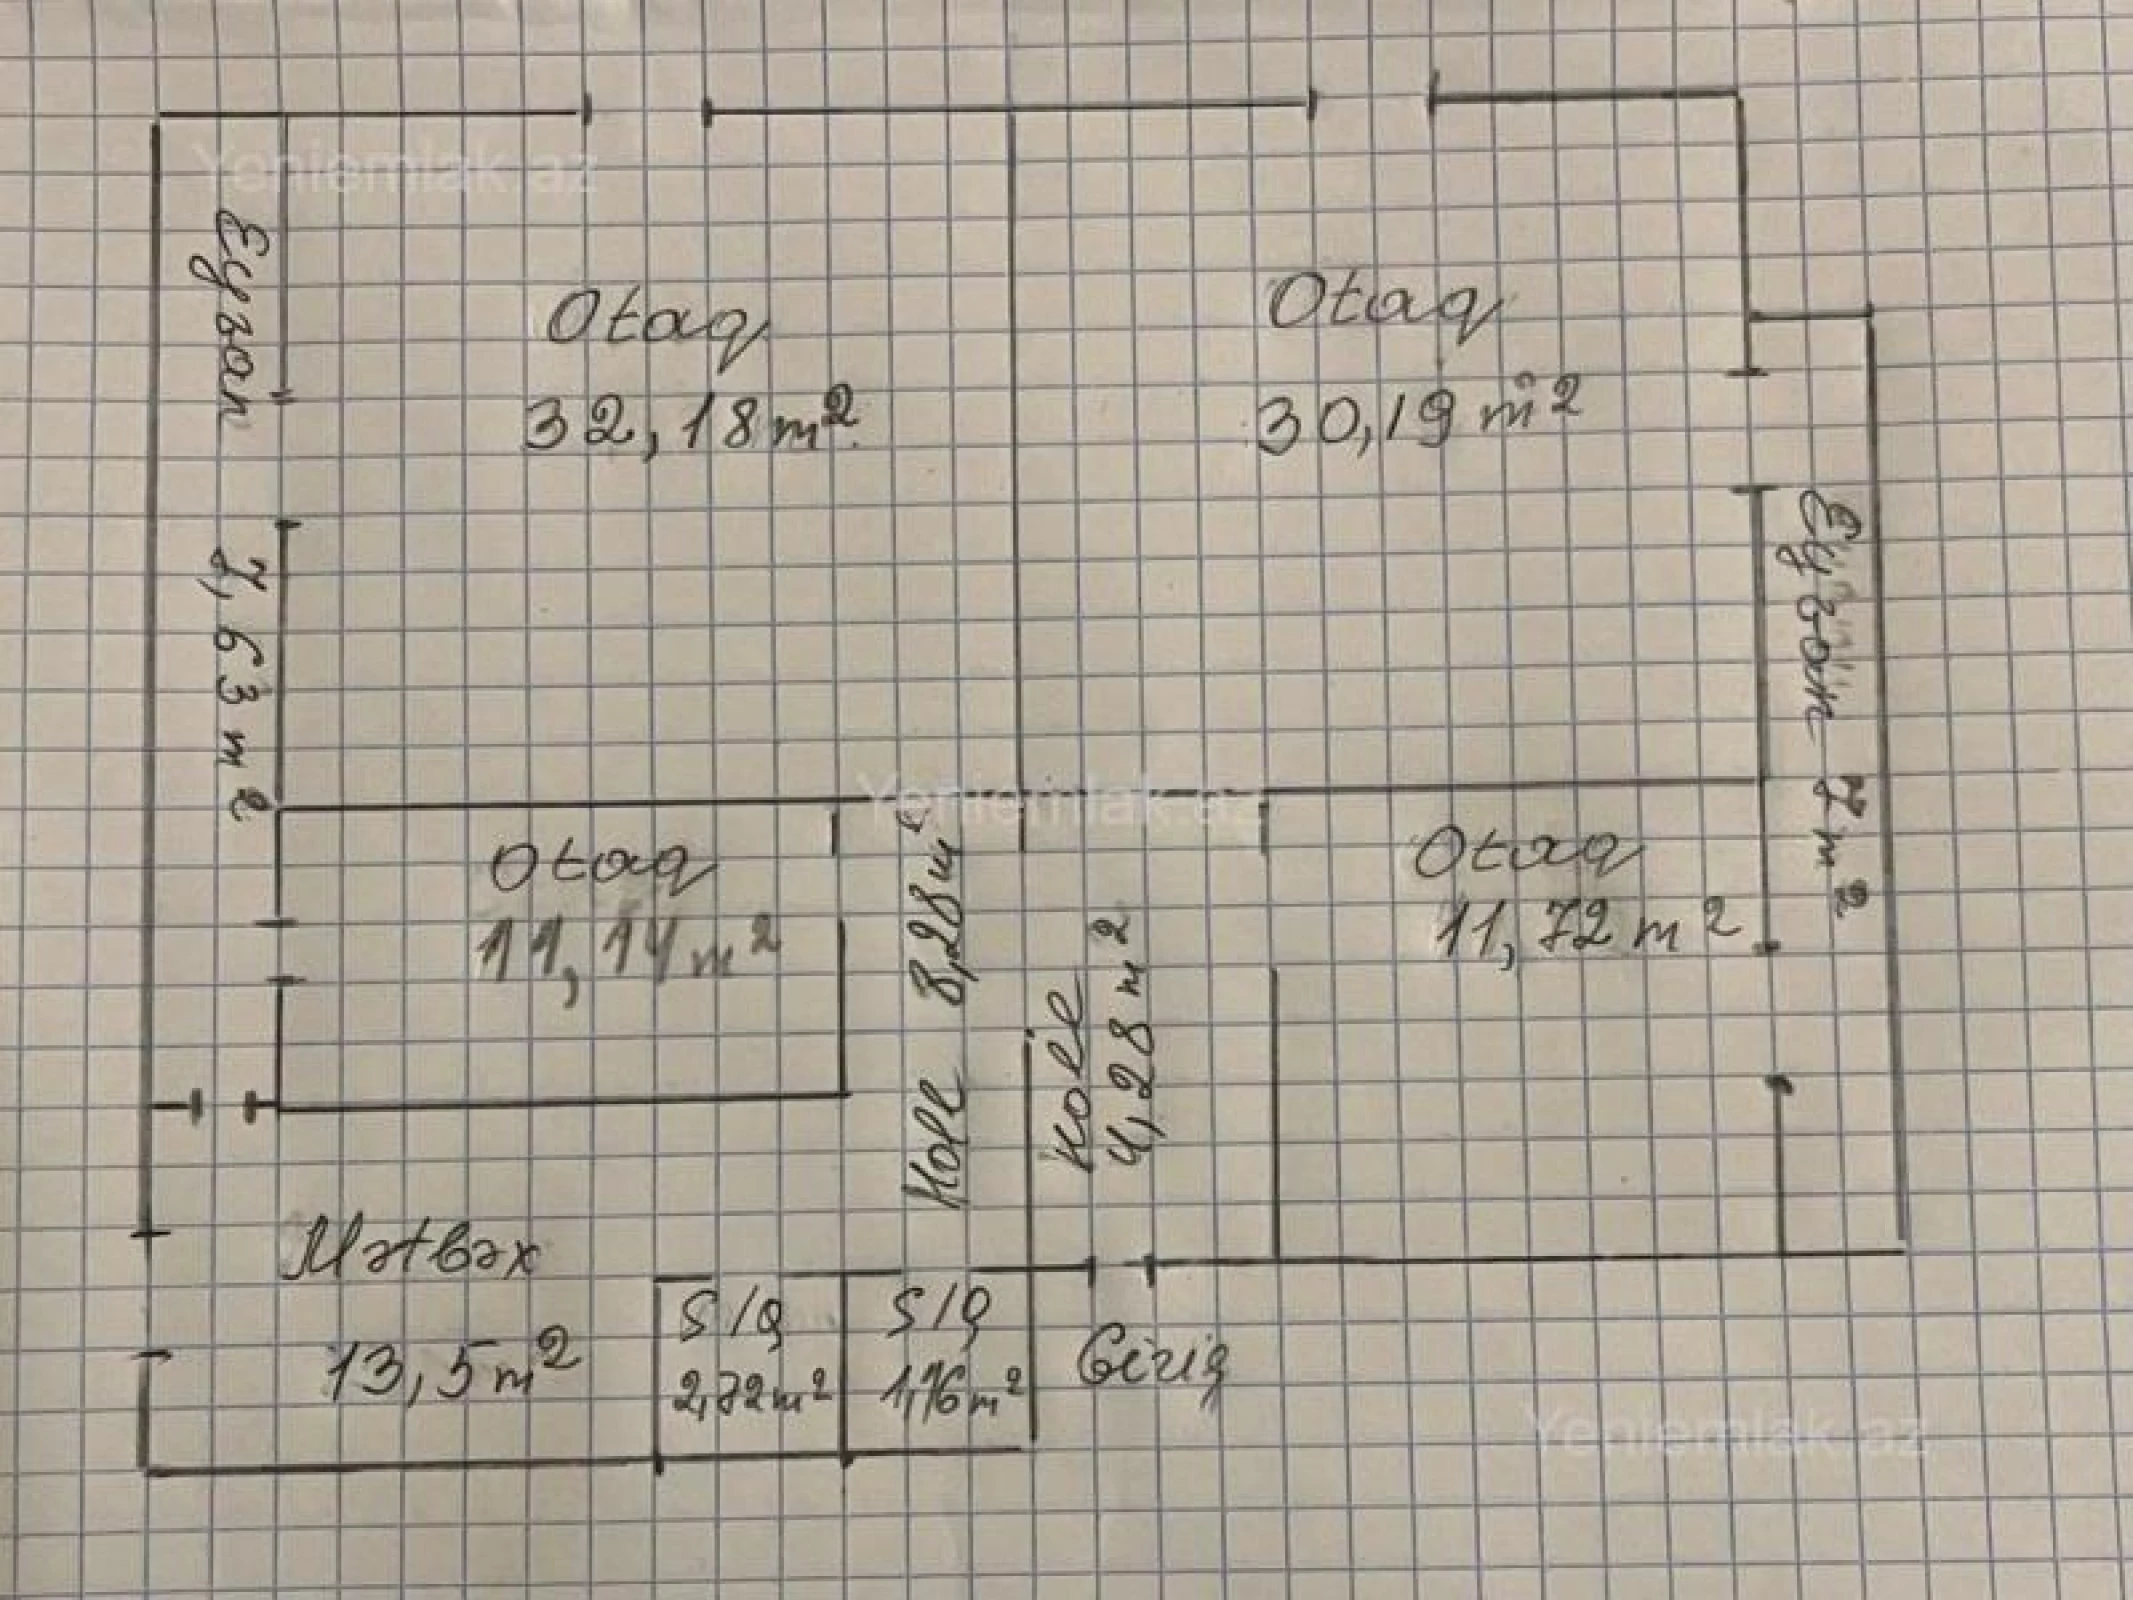 Yeniemlak.az
Eyvan 7,63 m2
Otaq
32,18 m²
Otaq
30,19 m²
Eyvan 7 m²
Yeniemlak.az
Otaq
11,14 m²
Holl 8,28 m²
Holl
4,28 m²
Otaq
11,72 m²
Mətbəx
13,5 m²
S/Q
2,72 m²
S/Q
1,76 m²
Giriş
Yeniemlak.az